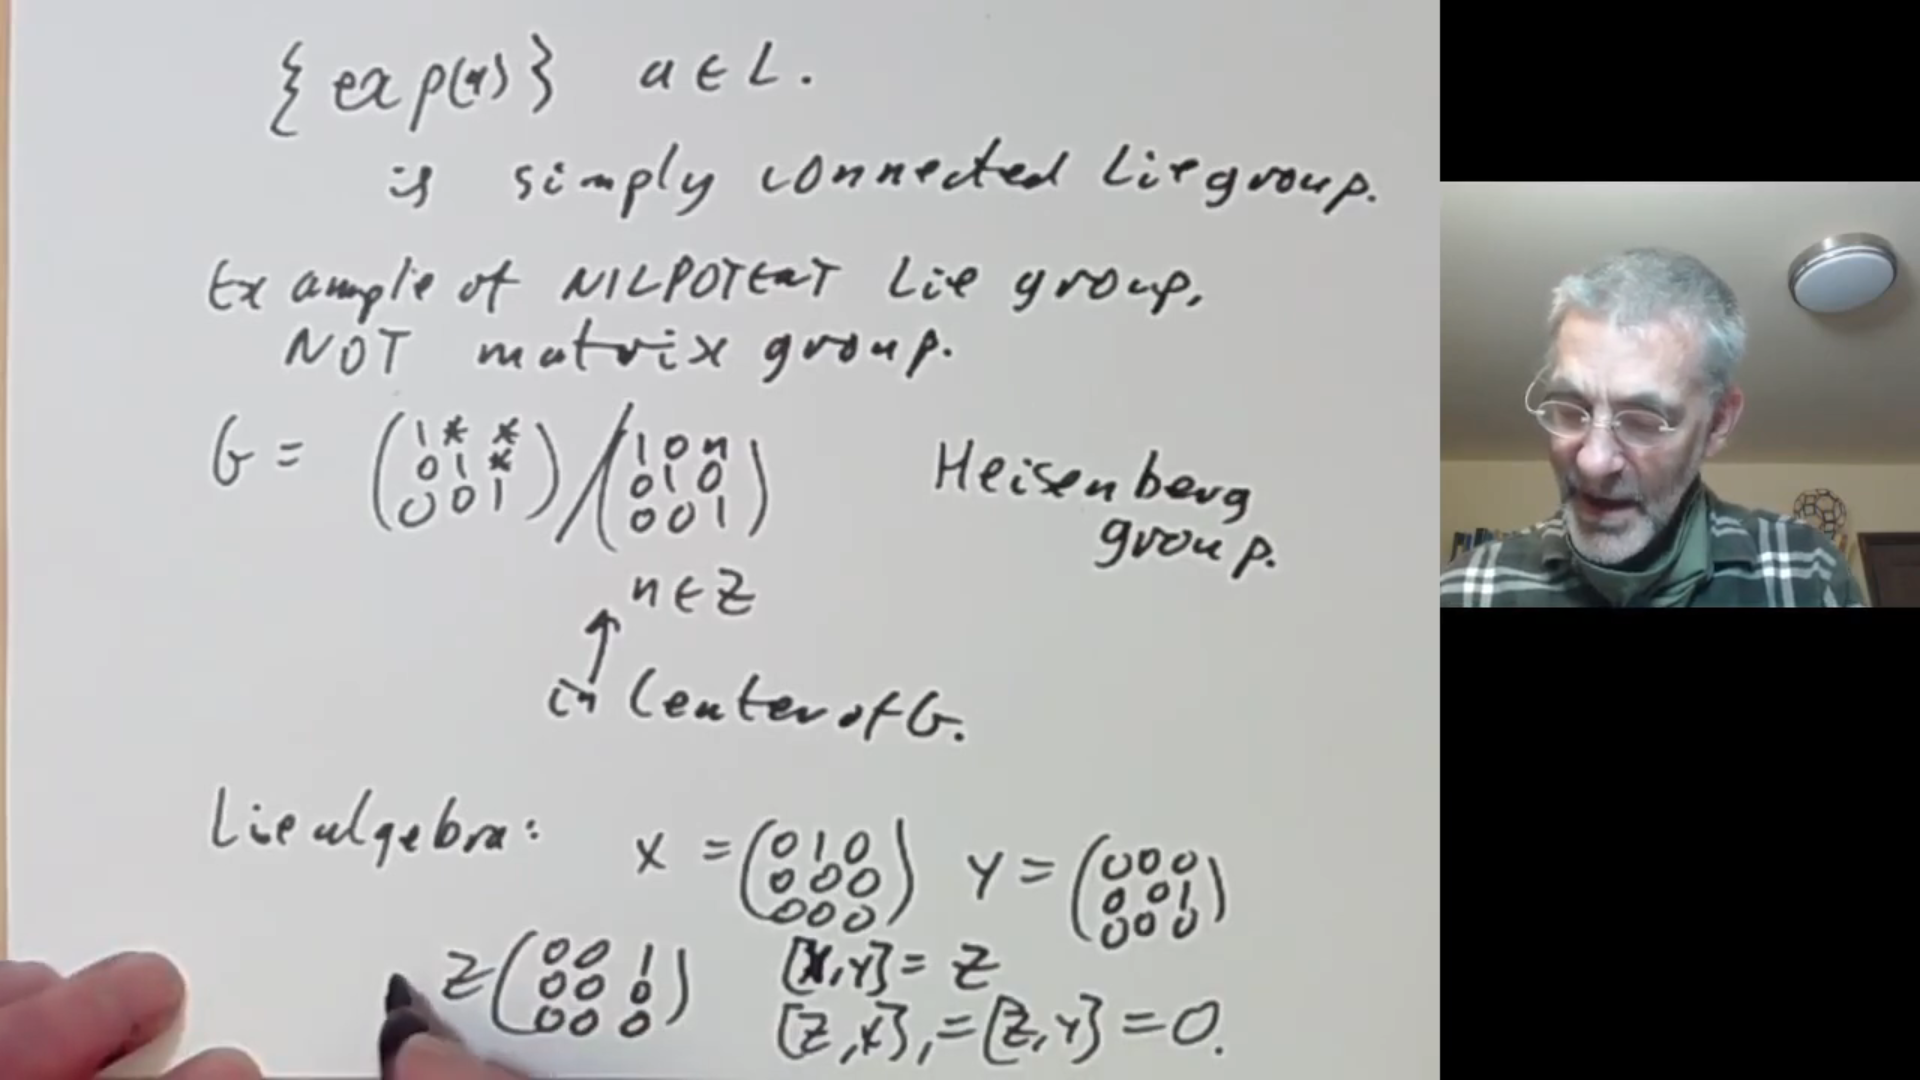 {exp(a)} a ∈ L.
is simply connected Lie group.
Example of NILPOTENT Lie group,
NOT matrix group.
G = (1 * * / (1 0 n
0 1 * 0 1 0
0 0 1) 0 0 1)
Heisenberg
group.
n ∈ Z
↑
in Center of G.
Lie algebra: X = (0 1 0 Y = (0 0 0
0 0 0 0 0 1
0 0 0) 0 0 0)
Z (0 0 1 [X,Y] = Z
0 0 0
0 0 0) [Z,X], = [Z,Y] = 0.